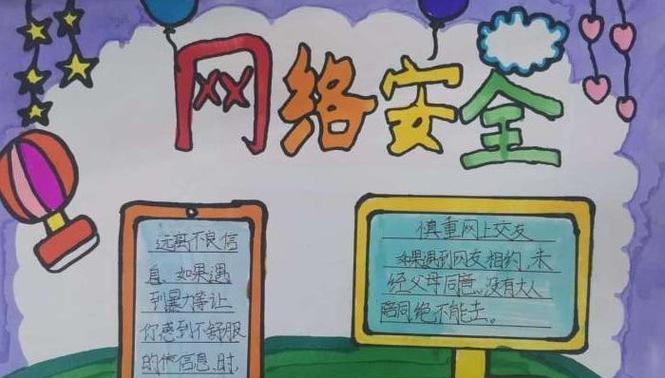 网络安全
远离不良信
息、如果遇
到暴力等让
你感到不舒服
的信息时,
慎重网上交友
如果遇到网友相约,未
经父母同意、没有大人
陪同绝不能去。